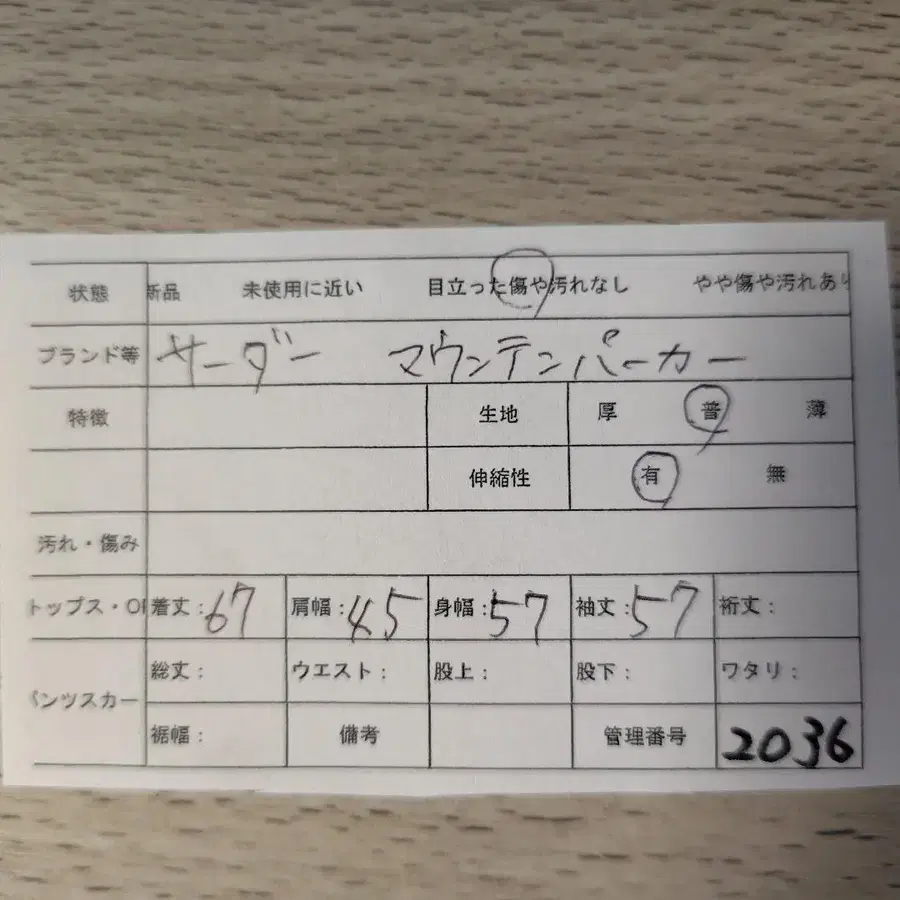 状態 新品 未使用に近い 目立った傷や汚れなし やや傷や汚れあり
ブランド等 サーダー マウンテンパーカー
特徴 生地 厚 普 薄
伸縮性 有 無
汚れ・傷み
トップス・OP 着丈:67 肩幅:45 身幅:57 袖丈:57 裄丈:
パンツスカー 総丈: ウエスト: 股上: 股下: ワタリ:
裾幅: 備考 管理番号 2036